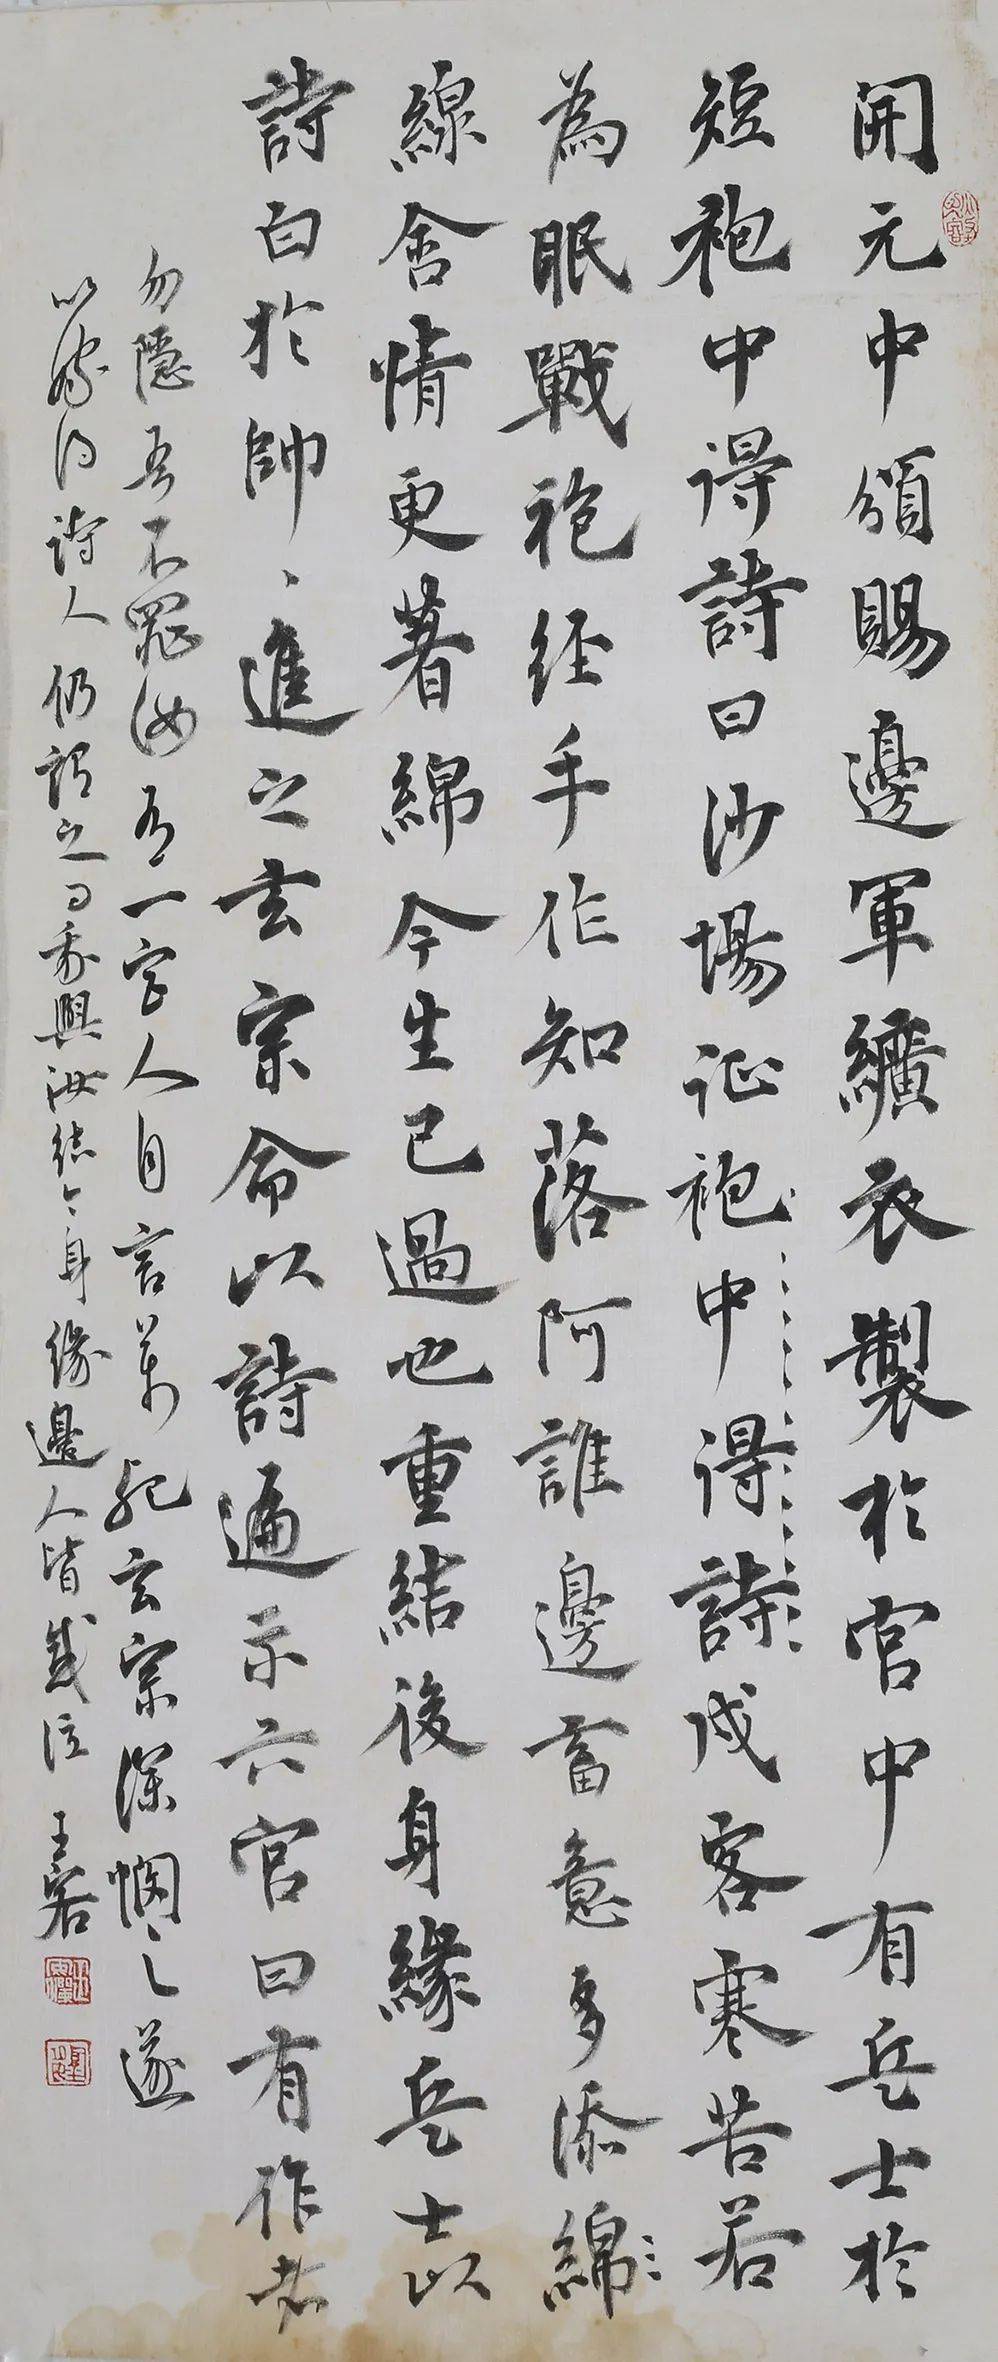 開元中頒賜邊軍纊衣製於宮中有兵士於
短袍中得詩曰沙場证袍中得詩戍客寒苦若
為眠戰袍经手作知落阿誰邊畜意多添綿
線含情更著綿今生已過也重結後身緣兵士以
詩白於帥、進之玄宗命以詩遍示六宮曰有作者
勿隱吾不罪汝有一宮人自言萬死玄宗深憫之遂
以嫁得詩人仍謂之曰我與汝結今身緣邊人皆感泣 王容